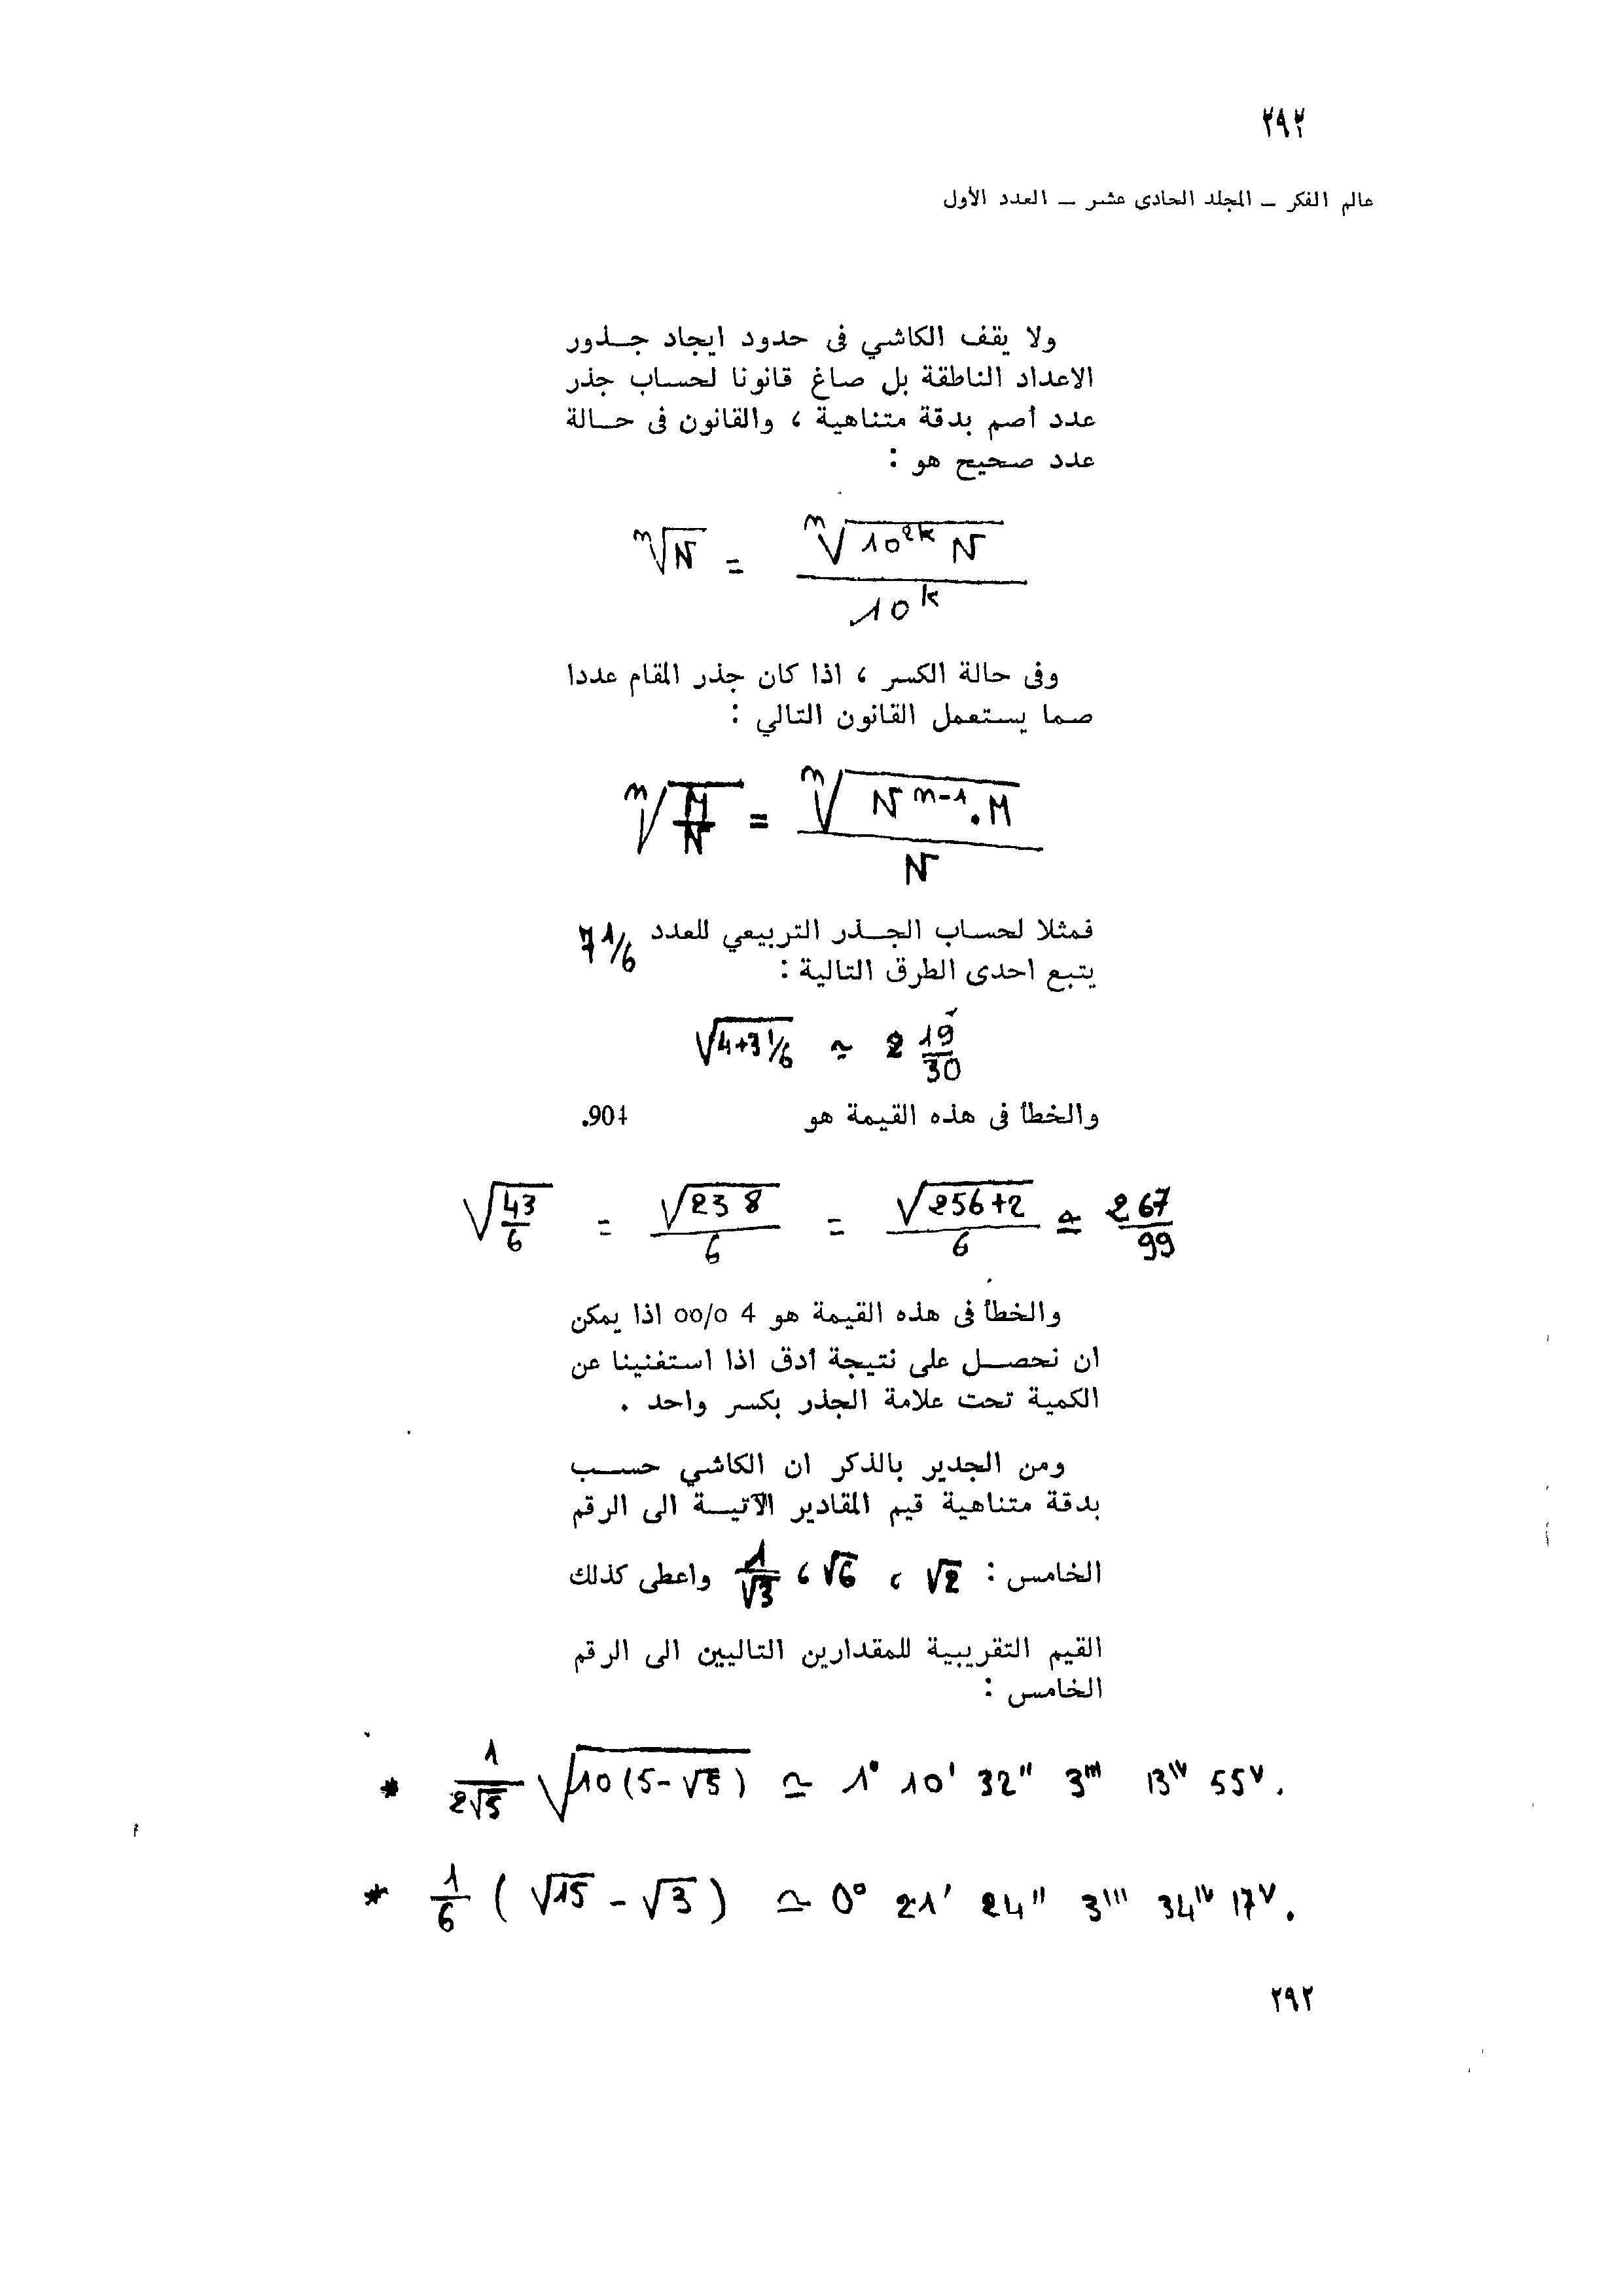 ٢٩٢
عالم الفكر — المجلد الحادى عشر — العدد الأول
ولا يقف الكاشي فى حدود ايجاد جـذور
الاعداد الناطقة بل صاغ قانونا لحساب جذر
عدد أصم بدقة متناهية ، والقانون فى حـالة
عدد صحيح هو :
ⁿ√N = ⁿ√(10^2k N) / 10^k
وفى حالة الكسر ، اذا كان جذر المقام عددا
صما يستعمل القانون التالي :
ⁿ√(M/N) = ⁿ√(N^n-1 . M) / N
فمثلا لحساب الجـذر التربيعي للعدد 7 1/6
يتبع احدى الطرق التالية :
√(4+3 1/6) ≃ 2 19/30
والخطأ فى هذه القيمة هو
√(43/6) = √238 / 6 = √(256+2) / 6 ≃ 267/99
والخطأ فى هذه القيمة هو 4 oo/o اذا يمكن
ان نحصـل على نتيجة أدق اذا استفنينا عن
الكمية تحت علامة الجذر بكسر واحد .
ومن الجدير بالذكر ان الكاشي حسـب
بدقة متناهية قيم المقادير الآتيـة الى الرقم
الخامس : √2 ، √6 ، 1/√3 واعطى كذلك
القيم التقريبية للمقدارين التاليين الى الرقم
الخامس :
* 1/(2√5) √(10(5-√5)) ≃ 1° 10' 32" 3''' 13^IV 55^V.
* 1/6 (√15 - √3) ≃ 0° 21' 24" 3''' 34^IV 17^V.
٢٩٢